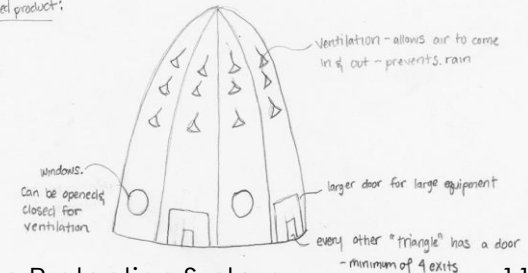 ed product:
ventilation - allows air to come
in & out - prevents rain
windows.
can be opened &
closed for
ventilation
larger door for large equipment
every other "triangle" has a door
- minimum of 4 exits